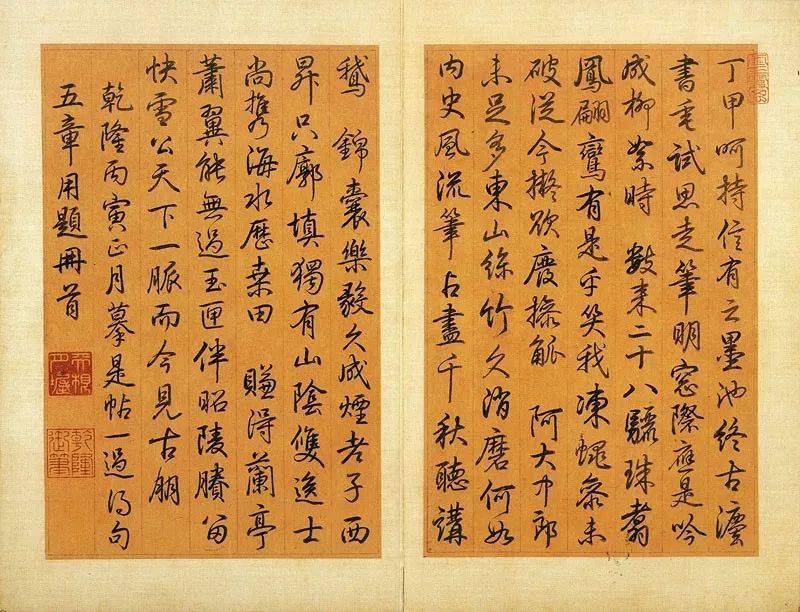 丁甲呵持信有之墨池終古灋
書垂試思走筆明窗際應是吟
成柳絮時 數來二十八驪珠翥
鳳翩鸞有是乎笑我凍蠅參未
破從今擬欲廢操觚 阿大中郎
未足多東山絲竹久消磨何如
內史風流筆占盡千秋聽講
鵝 錦囊樂毅久成煙老子西
昇只廓填獨有山陰雙逸士
尚攜海水歷桑田 賺得蘭亭
蕭翼能無過玉匣伴昭陵賸留
快雪公天下一脈而今見古朋
乾隆丙寅正月摹是帖一過得句
五章用題冊首
乾隆御筆